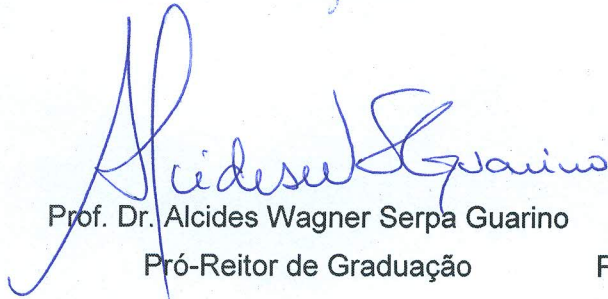 AlcideswSGuarino
Prof. Dr. Alcides Wagner Serpa Guarino
Pró-Reitor de Graduação